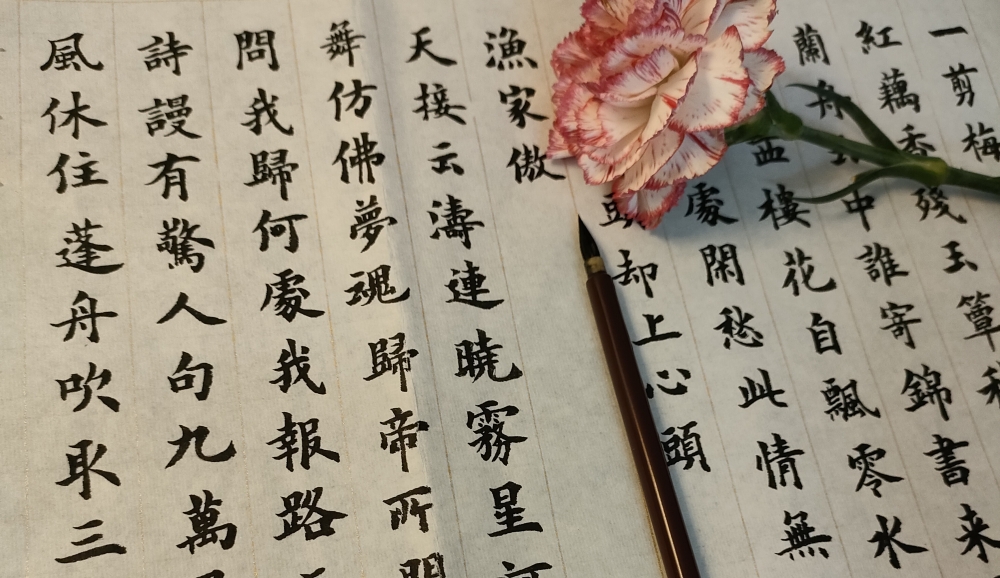 一剪梅
紅藕香殘玉簟秋
蘭舟中誰寄錦書来
樓花自飄零水
處閑愁此情無
頭却上心頭
漁家傲
天接云濤連曉霧星河
舞仿佛夢魂歸帝所聞
問我歸何處我報路
詩謾有驚人句九萬
風休住蓬舟吹取三